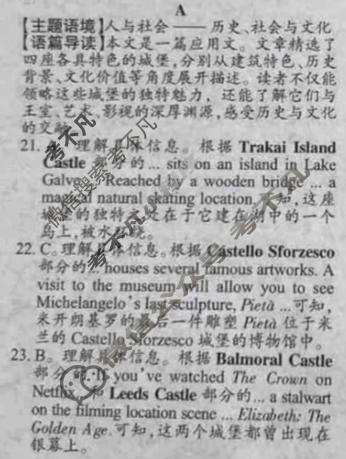 A
【主题语境】人与社会——历史、社会与文化
【语篇导读】本文是一篇应用文。文章精选了
四座各具特色的城堡,分别从建筑特色、历史
背景、文化价值等角度展开描述。读者不仅能
领略这些城堡的独特魅力,还能了解它们与
王室、艺术、影视的深厚渊源,感受历史与文化
的交融。
21. 理解具体信息。根据 Trakai Island
Castle 部分的... sits on an island in Lake
Galvos. Reached by a wooden bridge ... a
magical natural skating location. 可知,这座
城堡的独特之处在于它建在湖中的一个
岛上,被水包围。
22. C。理解具体信息。根据 Castello Sforzesco
部分的 houses several famous artworks. A
visit to the museum will allow you to see
Michelangelo's last sculpture, Pietà ... 可知,
米开朗基罗的最后一件雕塑 Pietà 位于米
兰的 Castello Sforzesco 城堡的博物馆中。
23. B。理解具体信息。根据 Balmoral Castle
部分的 If you've watched The Crown on
Netflix 和 Leeds Castle 部分的... a stalwart
on the filming location scene ... Elizabeth: The
Golden Age. 可知,这两个城堡都曾出现在
银幕上。